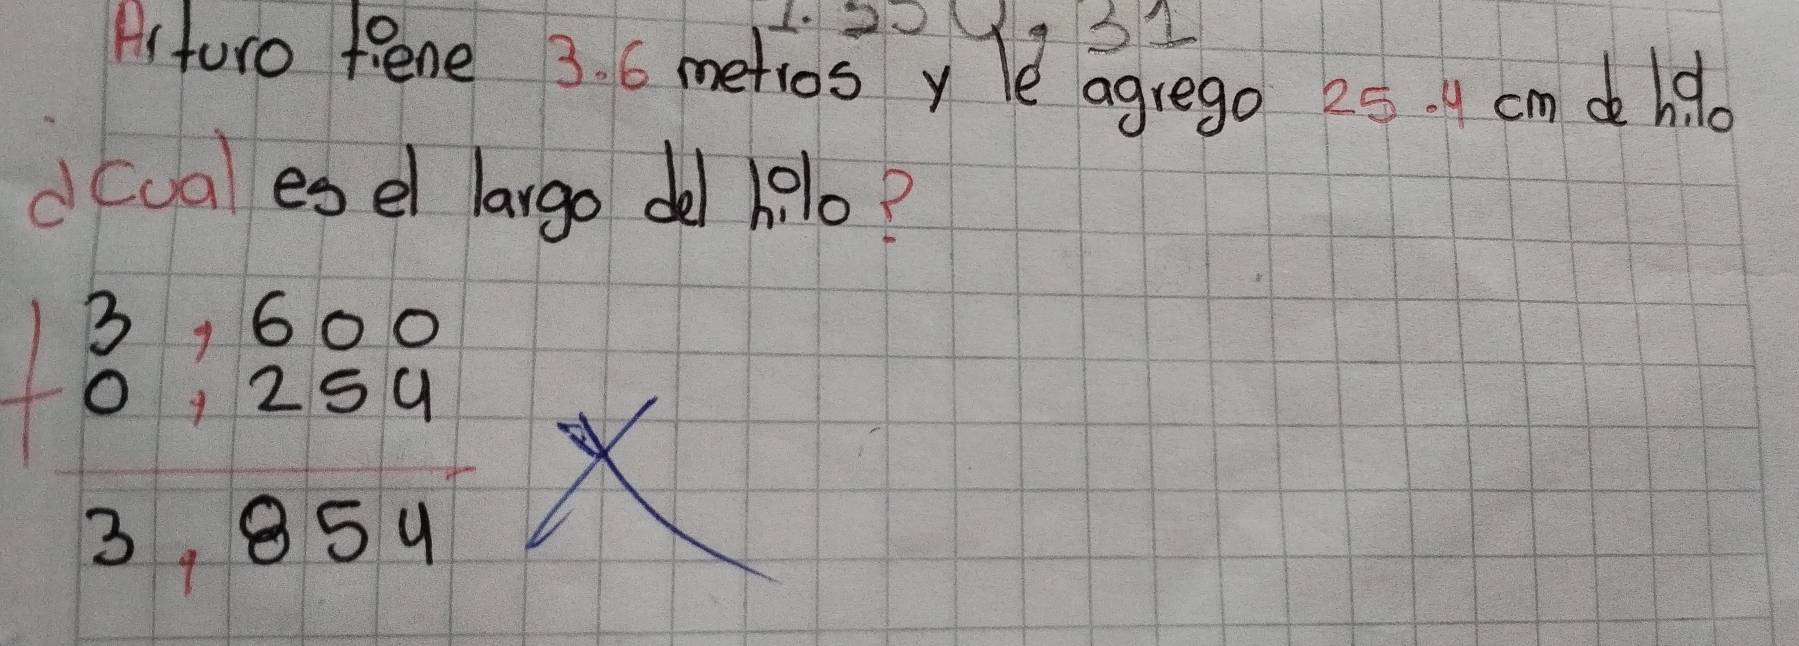 Arturo tiene 3.6 metros y le agrego 25.4 cm de hilo
¿Cual es el largo del hilo?
3,600
+ 0,254
3,854